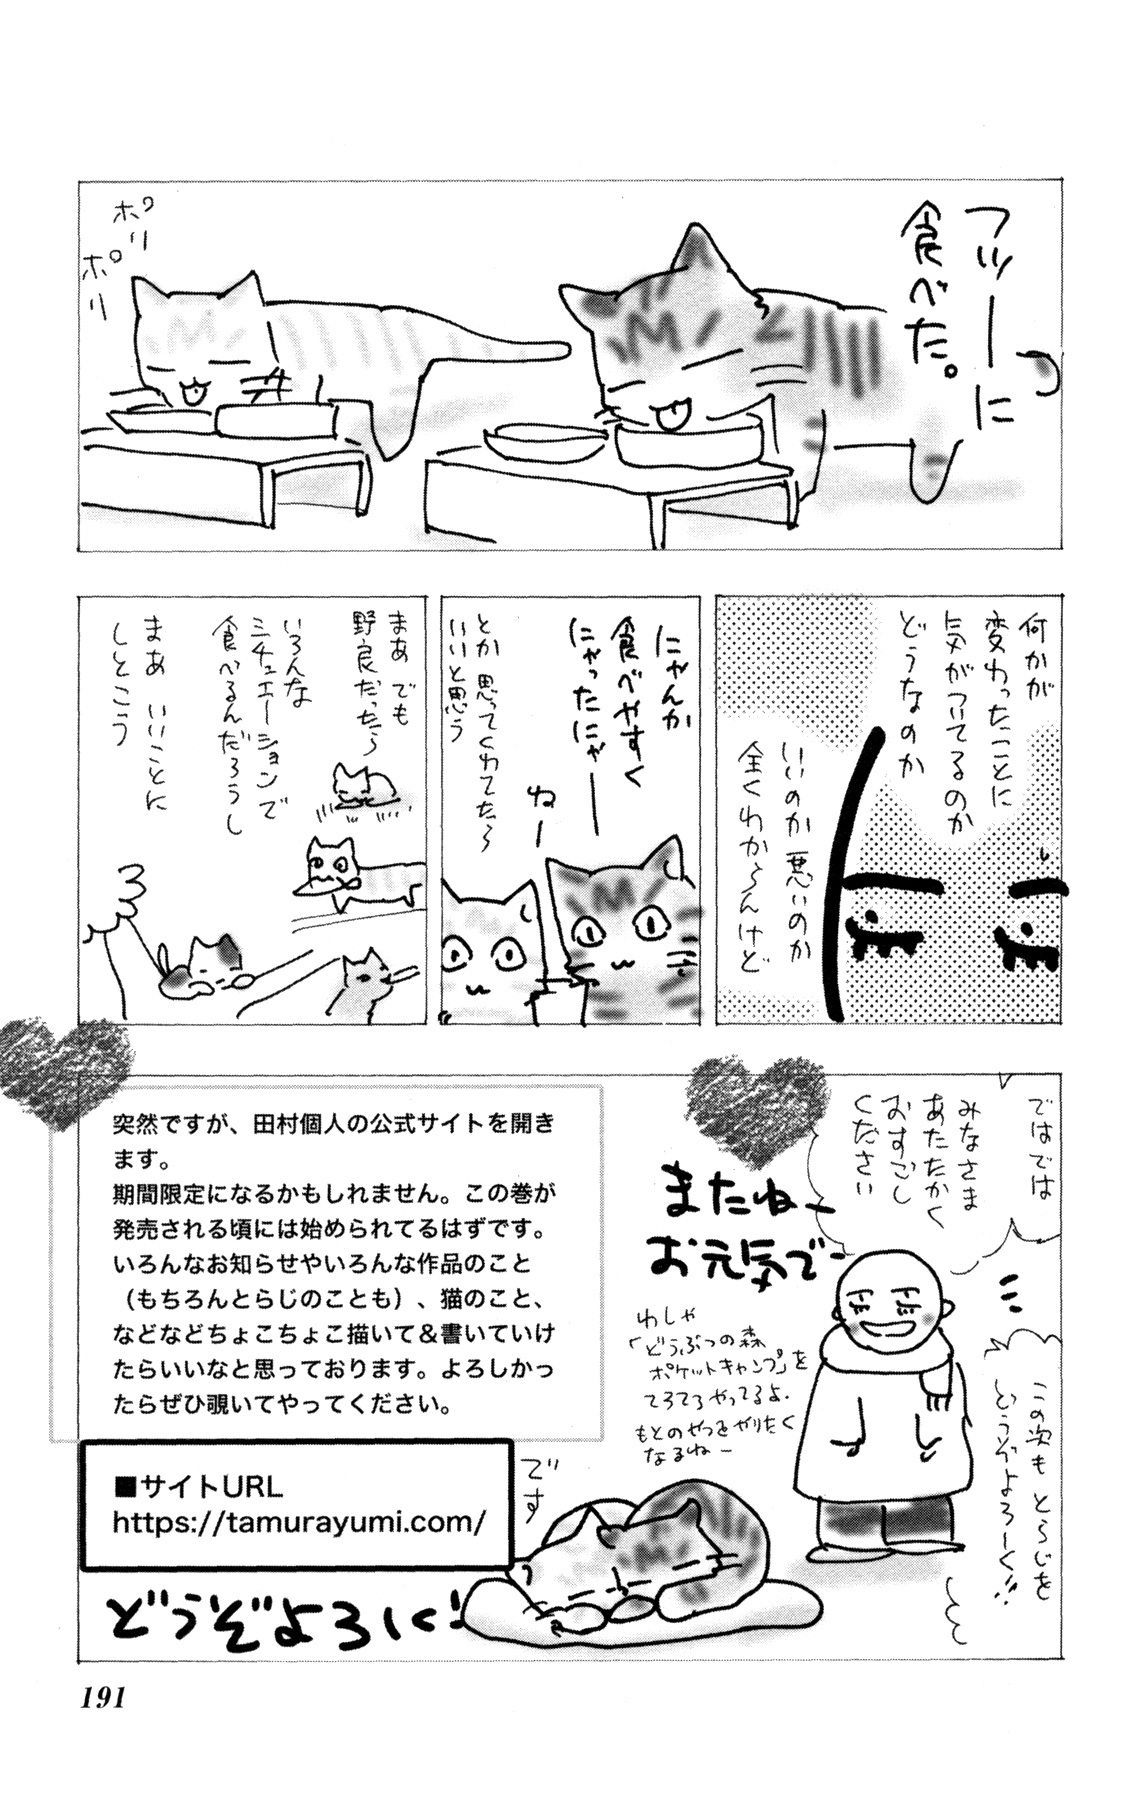 フツーに
食べた。
ポリ
ポリ
何かが
変わったことに
気がついてるのか
どうなのか
いいのか悪いのか
全くわからんけど
にゃんか
食べやすく
にゃったにゃー
ねー
とか思ってくれてたら
いいと思う
まあでも
野良だったら
いろんな
シチュエーションで
食べるんだろうし
まあいいことに
しとこう
ではでは
みなさま
あたたかく
おすごし
ください
この次もとらじを
どうぞよろしく!!
またねー
お元気でー
わしゃ
「どうぶつの森
ポケットキャンプ」を
てろてろやってるよ.
もとのやつをやりたく
なるねー
突然ですが、田村個人の公式サイトを開き
ます。
期間限定になるかもしれません。この巻が
発売される頃には始められてるはずです。
いろんなお知らせやいろんな作品のこと
（もちろんとらじのことも）、猫のこと、
などなどちょこちょこ描いて＆書いていけ
たらいいなと思っております。よろしかっ
たらぜひ覗いてやってください。
■サイトURL
https://tamurayumi.com/
です
どうぞよろしく!
191